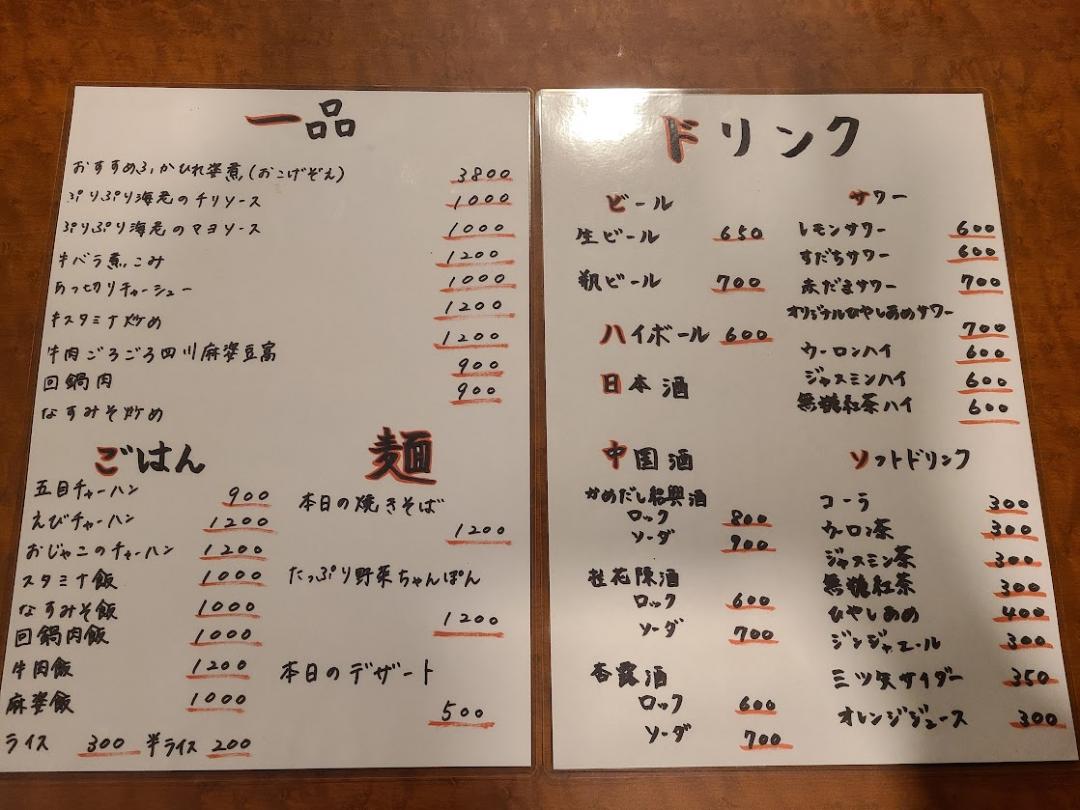 一品
おすすめふかひれ姿煮(おこげぞえ) 3800
ぷりぷり海老のチリソース 1000
ぷりぷり海老のマヨソース 1000
牛バラ煮こみ 1200
あっさりチャーシュー 1000
牛スタミナ炒め 1200
牛肉ごろごろ四川麻婆豆腐 1200
回鍋肉 900
なすみそ炒め 900
ごはん
五目チャーハン 900
えびチャーハン 1200
おじゃこのチャーハン 1200
スタミナ飯 1000
なすみそ飯 1000
回鍋肉飯 1000
牛肉飯 1200
麻婆飯 1000
ライス 300 半ライス 200
麺
本日の焼きそば
1200
たっぷり野菜ちゃんぽん
1200
本日のデザート
500
ドリンク
ビール
生ビール 650
瓶ビール 700
ハイボール 600
日本酒
中国酒
かめだし紹興酒
ロック 800
ソーダ 900
桂花陳酒
ロック 600
ソーダ 700
杏露酒
ロック 600
ソーダ 700
サワー
レモンサワー 600
すだちサワー 600
赤だまサワー 700
オリジナルひやしあめサワー
700
ウーロンハイ 600
ジャスミンハイ 600
無糖紅茶ハイ 600
ソフトドリンク
コーラ 300
ウーロン茶 300
ジャスミン茶 300
無糖紅茶 300
ひやしあめ 400
ジンジャエール 300
三ツ矢サイダー 350
オレンジジュース 300